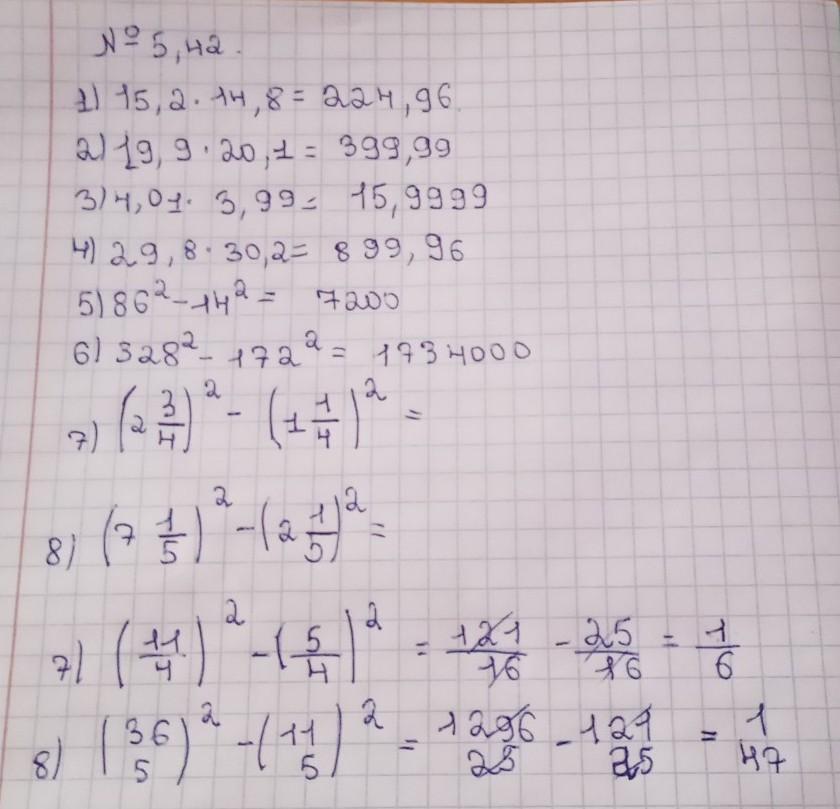 № 5,42.
1) 15,2 · 14,8 = 224,96.
2) 19,9 · 20,1 = 399,99
3) 4,01 · 3,99 = 15,9999
4) 29,8 · 30,2 = 899,96
5) 86² - 14² = 7200
6) 328² - 172² = 1734000
7) (2 3/4)² - (1 1/4)² =
8) (7 1/5)² - (2 1/5)² =
7) (11/4)² - (5/4)² = 121/16 - 25/16 = 1/6
8) (36/5)² - (11/5)² = 1296/25 - 121/25 = 1/47